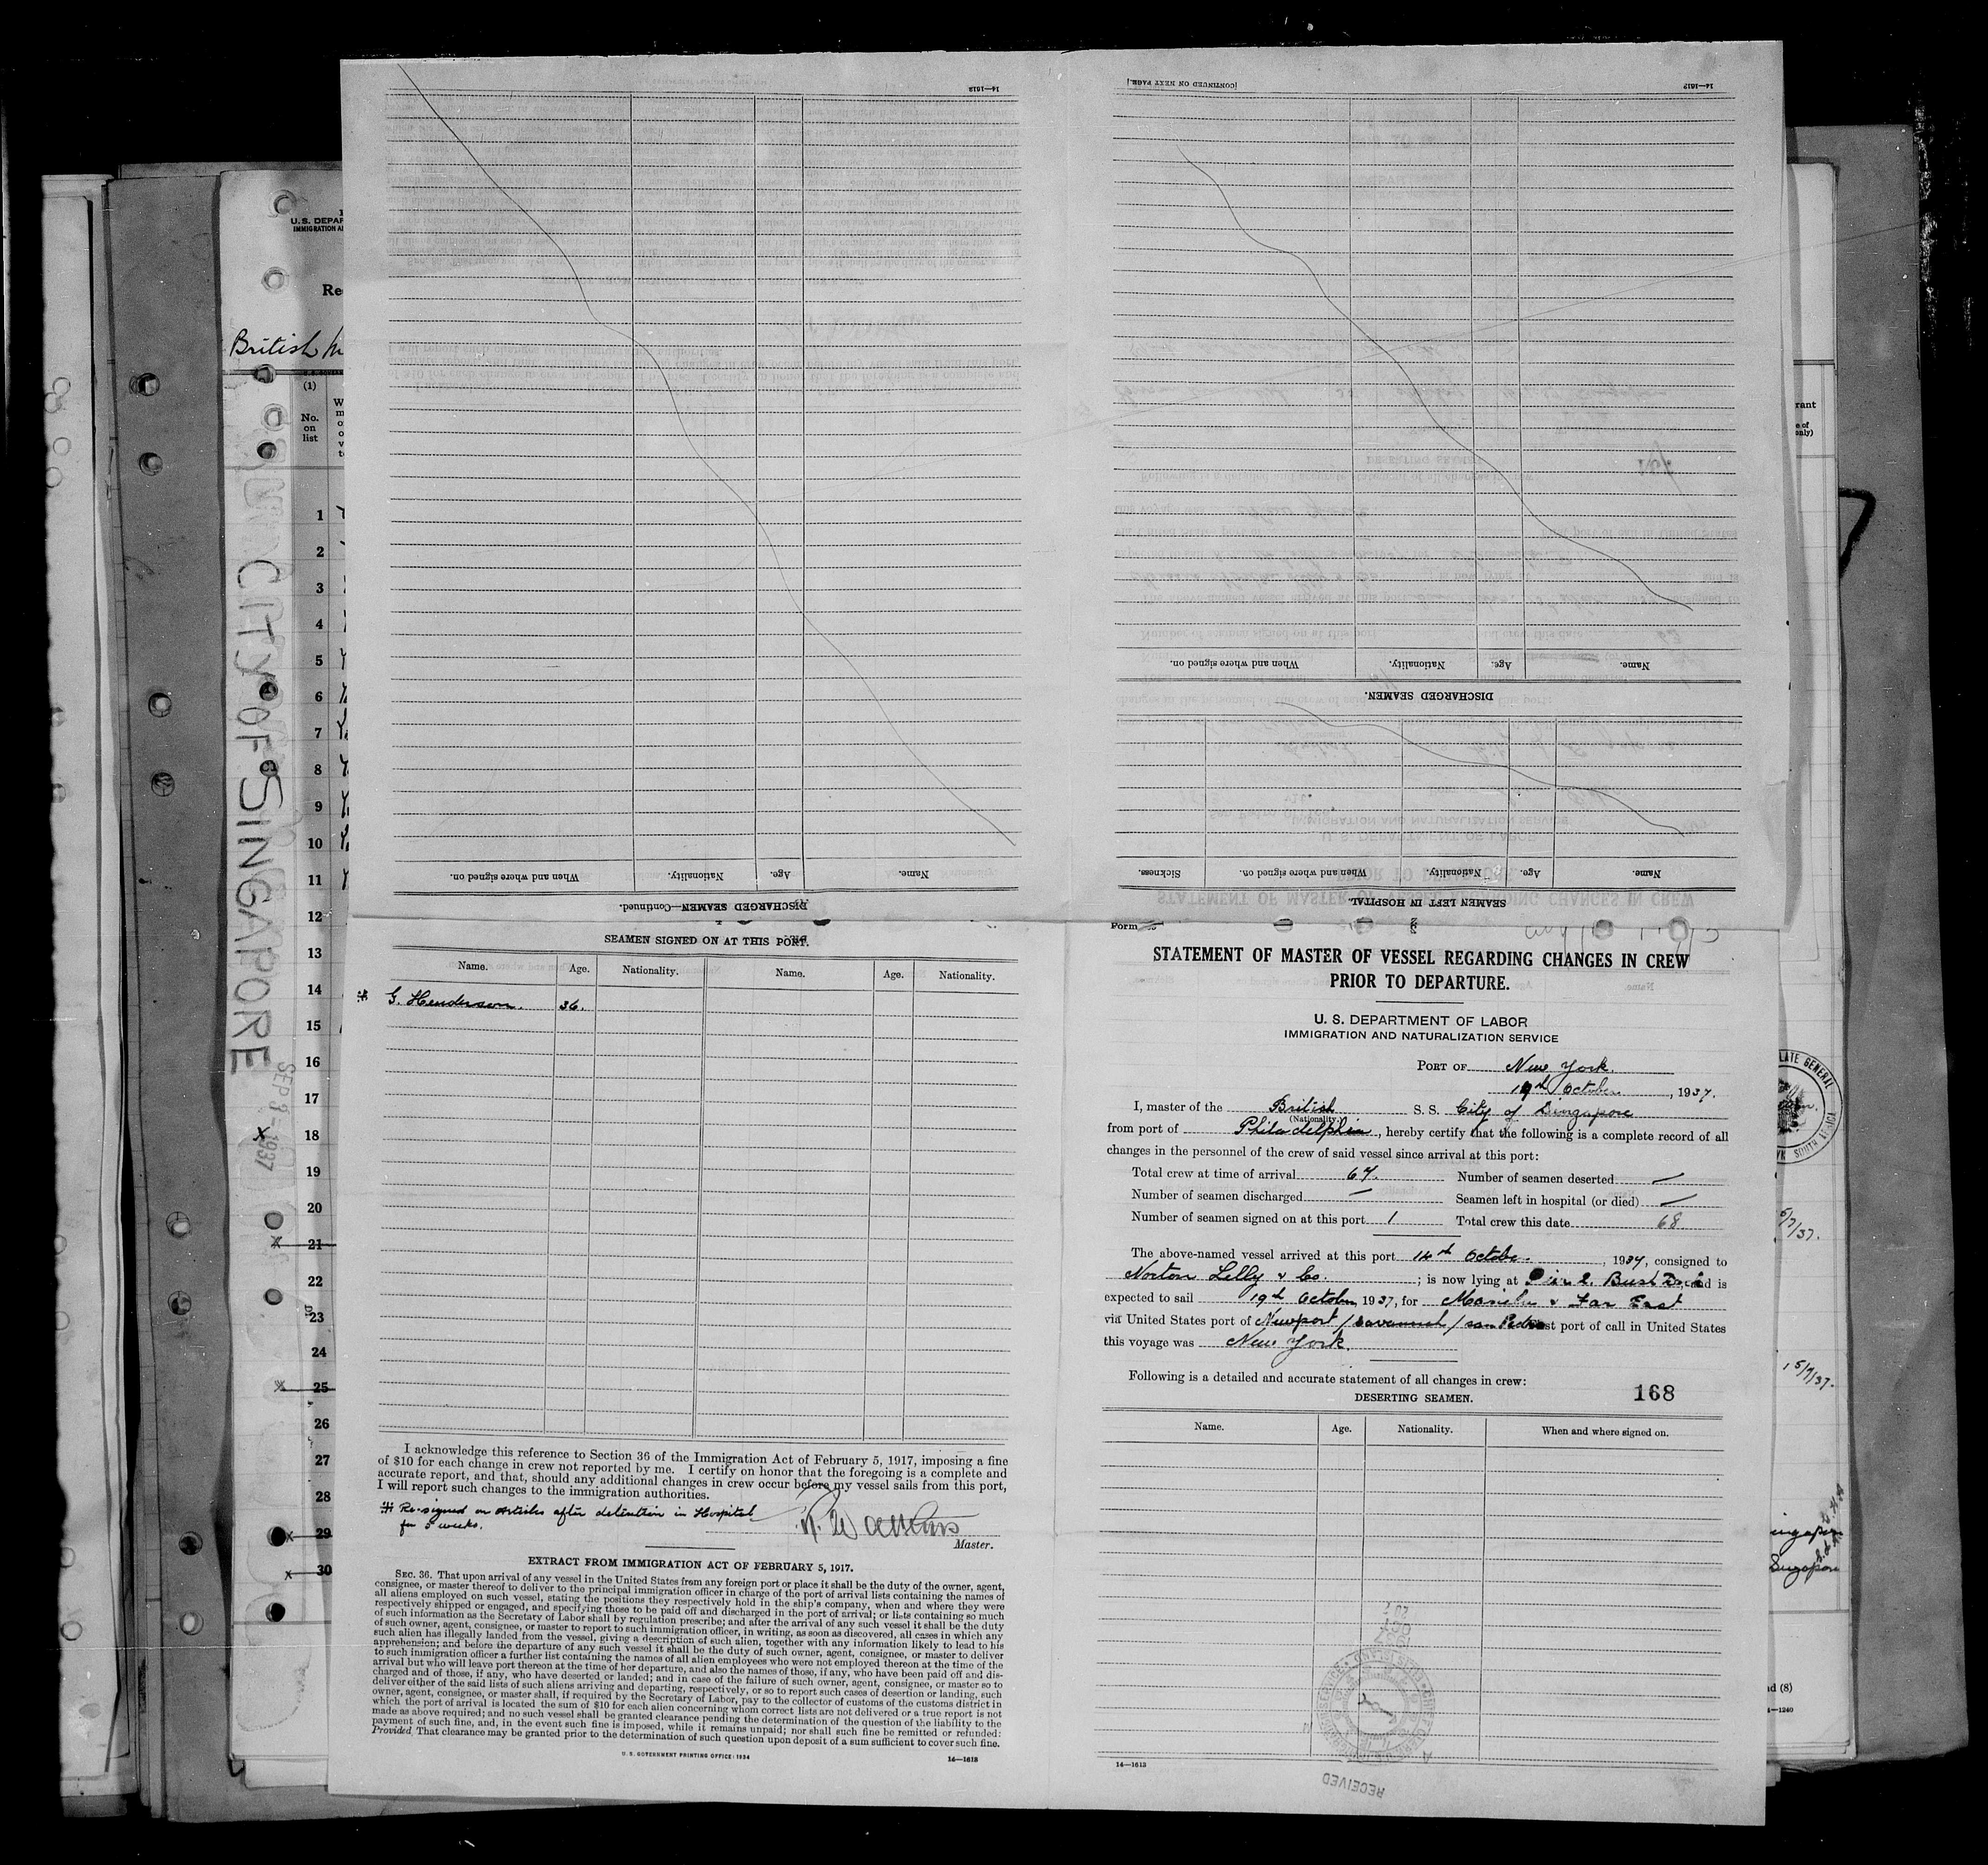 14—1613
(CONTINUED ON NEXT PAGE.)
14—1613
U. S. DEPAR
IMMIGRATION A
Re
British
(1)
No.
on
list
1
2
3
4
5
6
7
8
9
10
11
12
13
14
15
16
17
18
19
20
21
22
23
24
25
26
27
28
29
30
CITY OF SINGAPORE
SEP 1937
DISCHARGED SEAMEN—Continued.
Name.
Age.
Nationality.
When and where signed on.
DISCHARGED SEAMEN.
Name.
Age.
Nationality.
When and where signed on.
SEAMEN LEFT IN HOSPITAL.
Name.
Age.
Nationality.
When and where signed on.
Sickness.
SEAMEN SIGNED ON AT THIS PORT.
Name. Age. Nationality. Name. Age. Nationality.
G. Henderson. 36.
I acknowledge this reference to Section 36 of the Immigration Act of February 5, 1917, imposing a fine
of $10 for each change in crew not reported by me. I certify on honor that the foregoing is a complete and
accurate report, and that, should any additional changes in crew occur before my vessel sails from this port,
I will report such changes to the immigration authorities.
Re-signed on Articles after detention in Hospital
for 5 weeks.
Master.
EXTRACT FROM IMMIGRATION ACT OF FEBRUARY 5, 1917.
SEC. 36. That upon arrival of any vessel in the United States from any foreign port or place it shall be the duty of the owner, agent,
consignee, or master thereof to deliver to the principal immigration officer in charge of the port of arrival lists containing the names of
all aliens employed on such vessel, stating the positions they respectively hold in the ship's company, when and where they were
respectively shipped or engaged, and specifying those to be paid off and discharged in the port of arrival; or lists containing so much
of such information as the Secretary of Labor shall by regulation prescribe; and after the arrival of any such vessel it shall be the duty
of such owner, agent, consignee, or master to report to such immigration officer, in writing, as soon as discovered, all cases in which any
such alien has illegally landed from the vessel, giving a description of such alien, together with any information likely to lead to his
apprehension; and before the departure of any such vessel it shall be the duty of such owner, agent, consignee, or master to deliver
to such immigration officer a further list containing the names of all alien employees who were not employed thereon at the time of the
arrival but who will leave port thereon at the time of her departure, and also the names of those, if any, who have been paid off and dis-
charged and of those, if any, who have deserted or landed; and in case of the failure of such owner, agent, consignee, or master so to
deliver either of the said lists of such aliens arriving and departing, respectively, or so to report such cases of desertion or landing, such
owner, agent, consignee, or master shall, if required by the Secretary of Labor, pay to the collector of customs of the customs district in
which the port of arrival is located the sum of $10 for each alien concerning whom correct lists are not delivered or a true report is not
made as above required; and no such vessel shall be granted clearance pending the determination of the question of the liability to the
payment of such fine, and, in the event such fine is imposed, while it remains unpaid; nor shall such fine be remitted or refunded:
Provided, That clearance may be granted prior to the determination of such question upon deposit of a sum sufficient to cover such fine.
U. S. GOVERNMENT PRINTING OFFICE: 1934
14—1613
Form
STATEMENT OF MASTER OF VESSEL REGARDING CHANGES IN CREW
PRIOR TO DEPARTURE.
U. S. DEPARTMENT OF LABOR
IMMIGRATION AND NATURALIZATION SERVICE
PORT OF New York.
19th October, 1937.
I, master of the British S. S. City of Singapore
(Nationality.)
from port of Philadelphia, hereby certify that the following is a complete record of all
changes in the personnel of the crew of said vessel since arrival at this port:
Total crew at time of arrival 67. Number of seamen deserted —
Number of seamen discharged — Seamen left in hospital (or died) —
Number of seamen signed on at this port 1 Total crew this date 68
The above-named vessel arrived at this port 14th October, 1937, consigned to
Norton Lilly & Co.; is now lying at Pier 2. Bush Dock and is
expected to sail 19th October 1937, for Manila & Far East
via United States port of Newport / Savannah / San Pedro st port of call in United States
this voyage was New York.
Following is a detailed and accurate statement of all changes in crew:
168
DESERTING SEAMEN.
Name. Age. Nationality. When and where signed on.
RECEIVED
14—1613
rant
e of
only)
LATE GENERAL
SOUTH AFRICA
5/7/37.
15/7/37.
ingapore
Singapore
d (8)
—1240